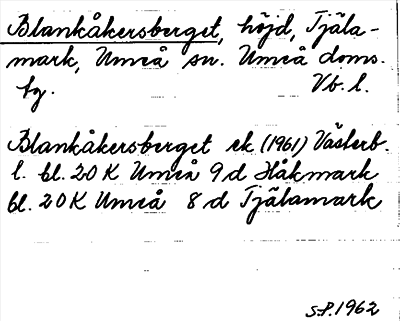 Blankåkersberget, höjd, Tjäla-
mark, Umeå sn. Umeå doms.
tg. Vb. l.
Blankåkersberget ek. (1961) Västerb.
l. bl. 20 K Umeå 9 d Håkmark
bl. 20 K Umeå 8 d Tjälamark
S.P. 1962